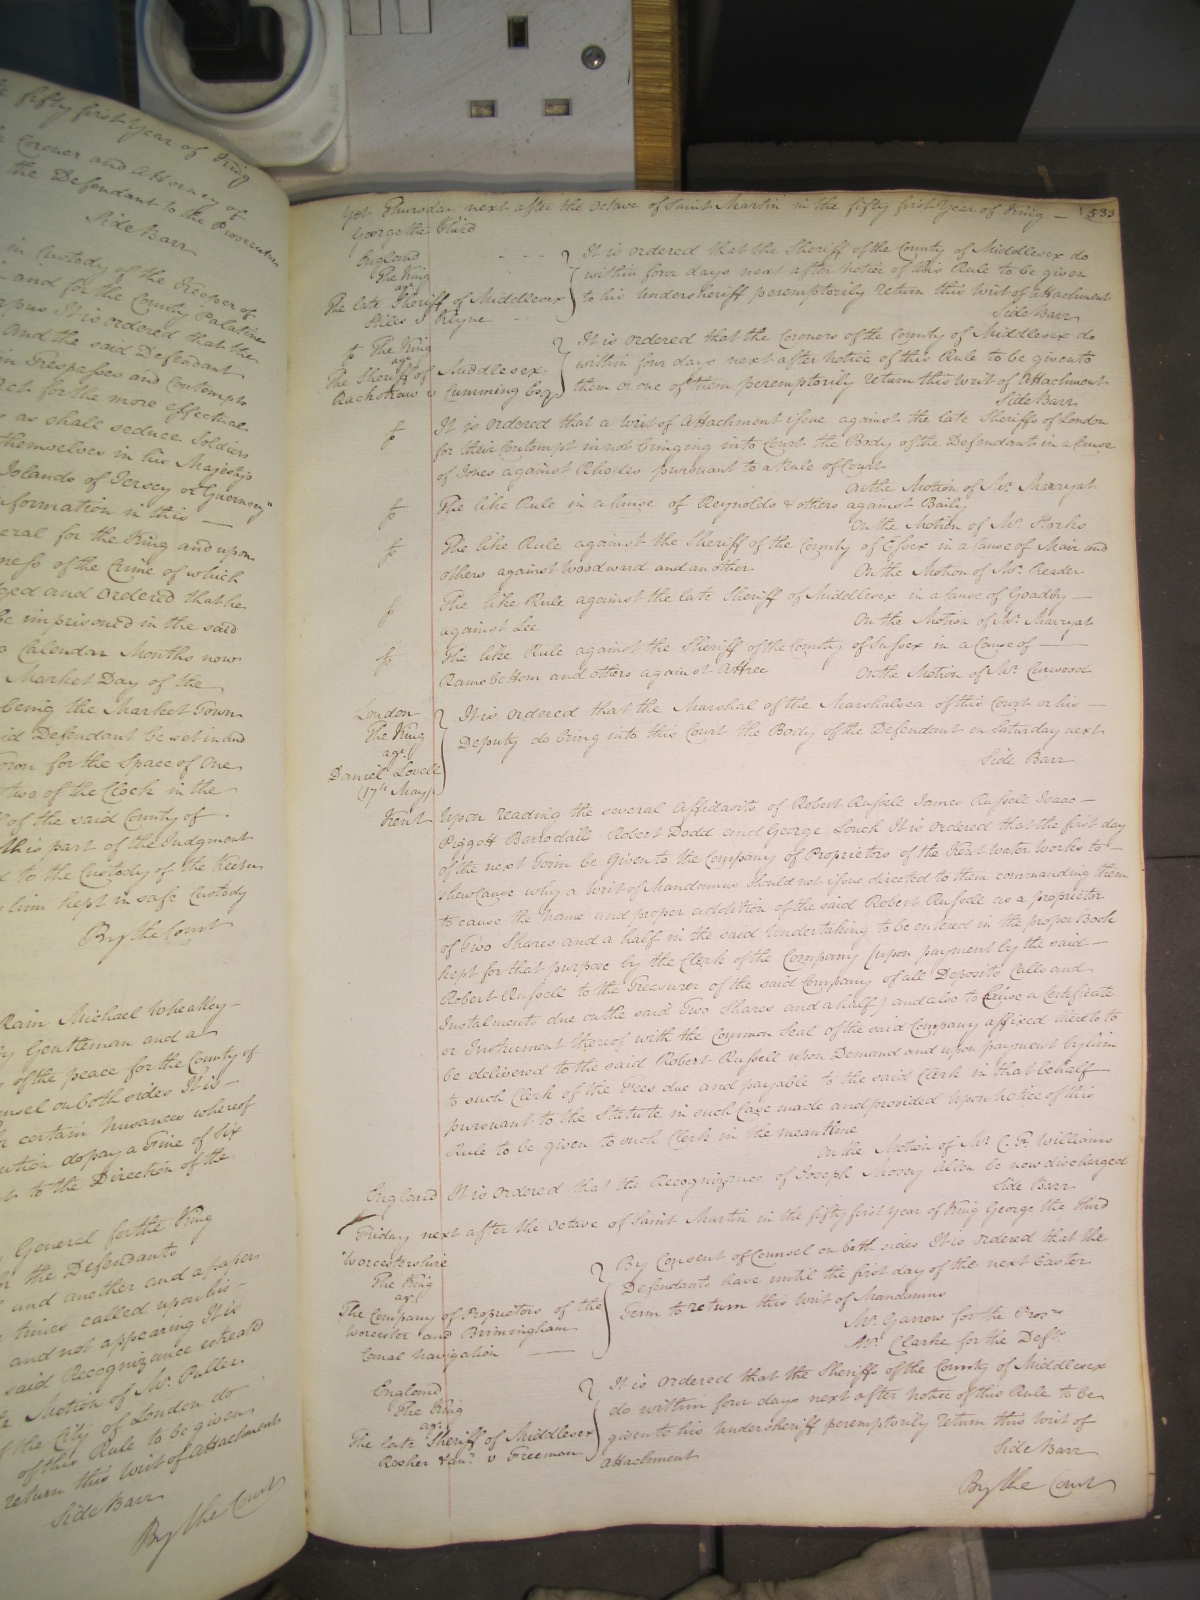 fifty first Year of King
Coroner and Attorney of
the Defendant to the Prosecutor
Side Barr
in Custody of the Keeper of
and for the County Palatine
It is ordered that the
and the said Defendant
in Trespasses and Contempts
Act for the more effectual
as shall seduce Soldiers
themselves in his Majesty's
Islands of Jersey or Guernsey"
formation in this —
eral for the King and upon
ness of the Crime of which
ged and ordered that he
be imprisoned in the said
Calendar Months now
Market Day of the
being the Market Town
id Defendant be set in and
for the Space of One
two of the Clock in the
of the said County of
this part of the Judgment
to the Custody of the Keeper
him kept in safe Custody
By the Court
Rain Michael Wheatley —
Gentleman and a
of the peace for the County of
unsel on both sides It is —
certain Nusances whereof
do pay a Fine of Six
to the Direction of the
General for the King
the Defendants
and another and a paper
times called upon his —
and not appearing It is
said Recognizance estreated
Motion of Mr. Puller
of the City of London do
of this Rule to be given
return this Writ of Attachment
Side Barr
By the Court
Yet Thursday next after the Octave of Saint Martin in the fifty first Year of King — 533
George the Third
England
The King
agt
The late Sheriff of Middlesex
Stiles v Klyne
It is ordered that the Sheriff of the County of Middlesex do
within four days next after notice of this Rule to be given
to his Undersheriff peremptorily return this Writ of Attachment
Side Barr
The King
agt
The Sheriff of Middlesex
Rackstraw v Cumming Esqr
It is ordered that the Coroners of the County of Middlesex do
within four days next after notice of this Rule to be given to
them or one of them peremptorily return this Writ of Attachment
Side Barr
It is ordered that a Writ of Attachment issue against the late Sheriffs of London
for their Contempt in not bringing into Court the Body of the Defendant in a Cause
of Jones against Rhodes pursuant to a Rule of Court
On the Motion of Mr. Marryat
The like Rule in a Cause of Reynolds & others against Baily
On the Motion of Mr. Storks
The like Rule against the Sheriff of the County of Essex in a Cause of Mair and
others against Woodward and another
On the Motion of Mr. Reader
The like Rule against the late Sheriff of Middlesex in a Cause of Goadby —
against Lee
On the Motion of Mr. Marryat
The like Rule against the Sheriff of the County of Sussex in a Cause of —
Ramsbottom and others against Attree
On the Motion of Mr. Curwood
London
The King
agt
Daniel Lovell
(17th May)
It is ordered that the Marshal of the Marshalsea of this Court or his —
Deputy do bring into this Court the Body of the Defendant on Saturday next
Side Barr
Kent
Upon reading the several Affidavits of Robert Russell James Russell Isaac —
Piggott Barrodaile Robert Dodd and George Louch It is ordered that the first day
of the next Term be given to the Company of Proprietors of the Kent Water Works to —
shew Cause why a Writ of Mandamus should not issue directed to them commanding them
to cause the Name and proper addition of the said Robert Russell as a proprietor
of Two Shares and a half in the said Undertaking to be entered in the proper Book
kept for that purpose by the Clerk of the Company (upon payment by the said —
Robert Russell to the Treasurer of the said Company of all Deposits Calls and
Instalments due on the said Two Shares and a half) and also to Cause a Certificate
or Instrument thereof with the Common Seal of the said Company affixed thereto to
be delivered to the said Robert Russell upon Demand and upon payment by him
to such Clerk of the Fees due and payable to the said Clerk in that behalf
pursuant to the Statute in such Case made and provided Upon notice of this
Rule to be given to such Clerk in the meantime
On the Motion of Mr. C. F. Williams
England It is ordered that the Recognizance of Joseph Mosey Allen be now discharged
Side Barr
Friday next after the Octave of Saint Martin in the fifty first Year of King George the Third
Worcestershire
The King
agt
The Company of Proprietors of the
Worcester and Birmingham
Canal Navigation
By Consent of Counsel on both sides It is ordered that the
Defendants have until the first day of the next Easter
Term to return this Writ of Mandamus
Mr. Garrow for the Prosr
Mr. Clarke for the Defts
England
The King
agt
The late Sheriff of Middlesex
Rosher & anr. v Freeman
It is ordered that the Sheriffs of the County of Middlesex
do within four days next after notice of this Rule to be
given to his Undersheriff peremptorily return this Writ of
Attachment
Side Barr
By the Court